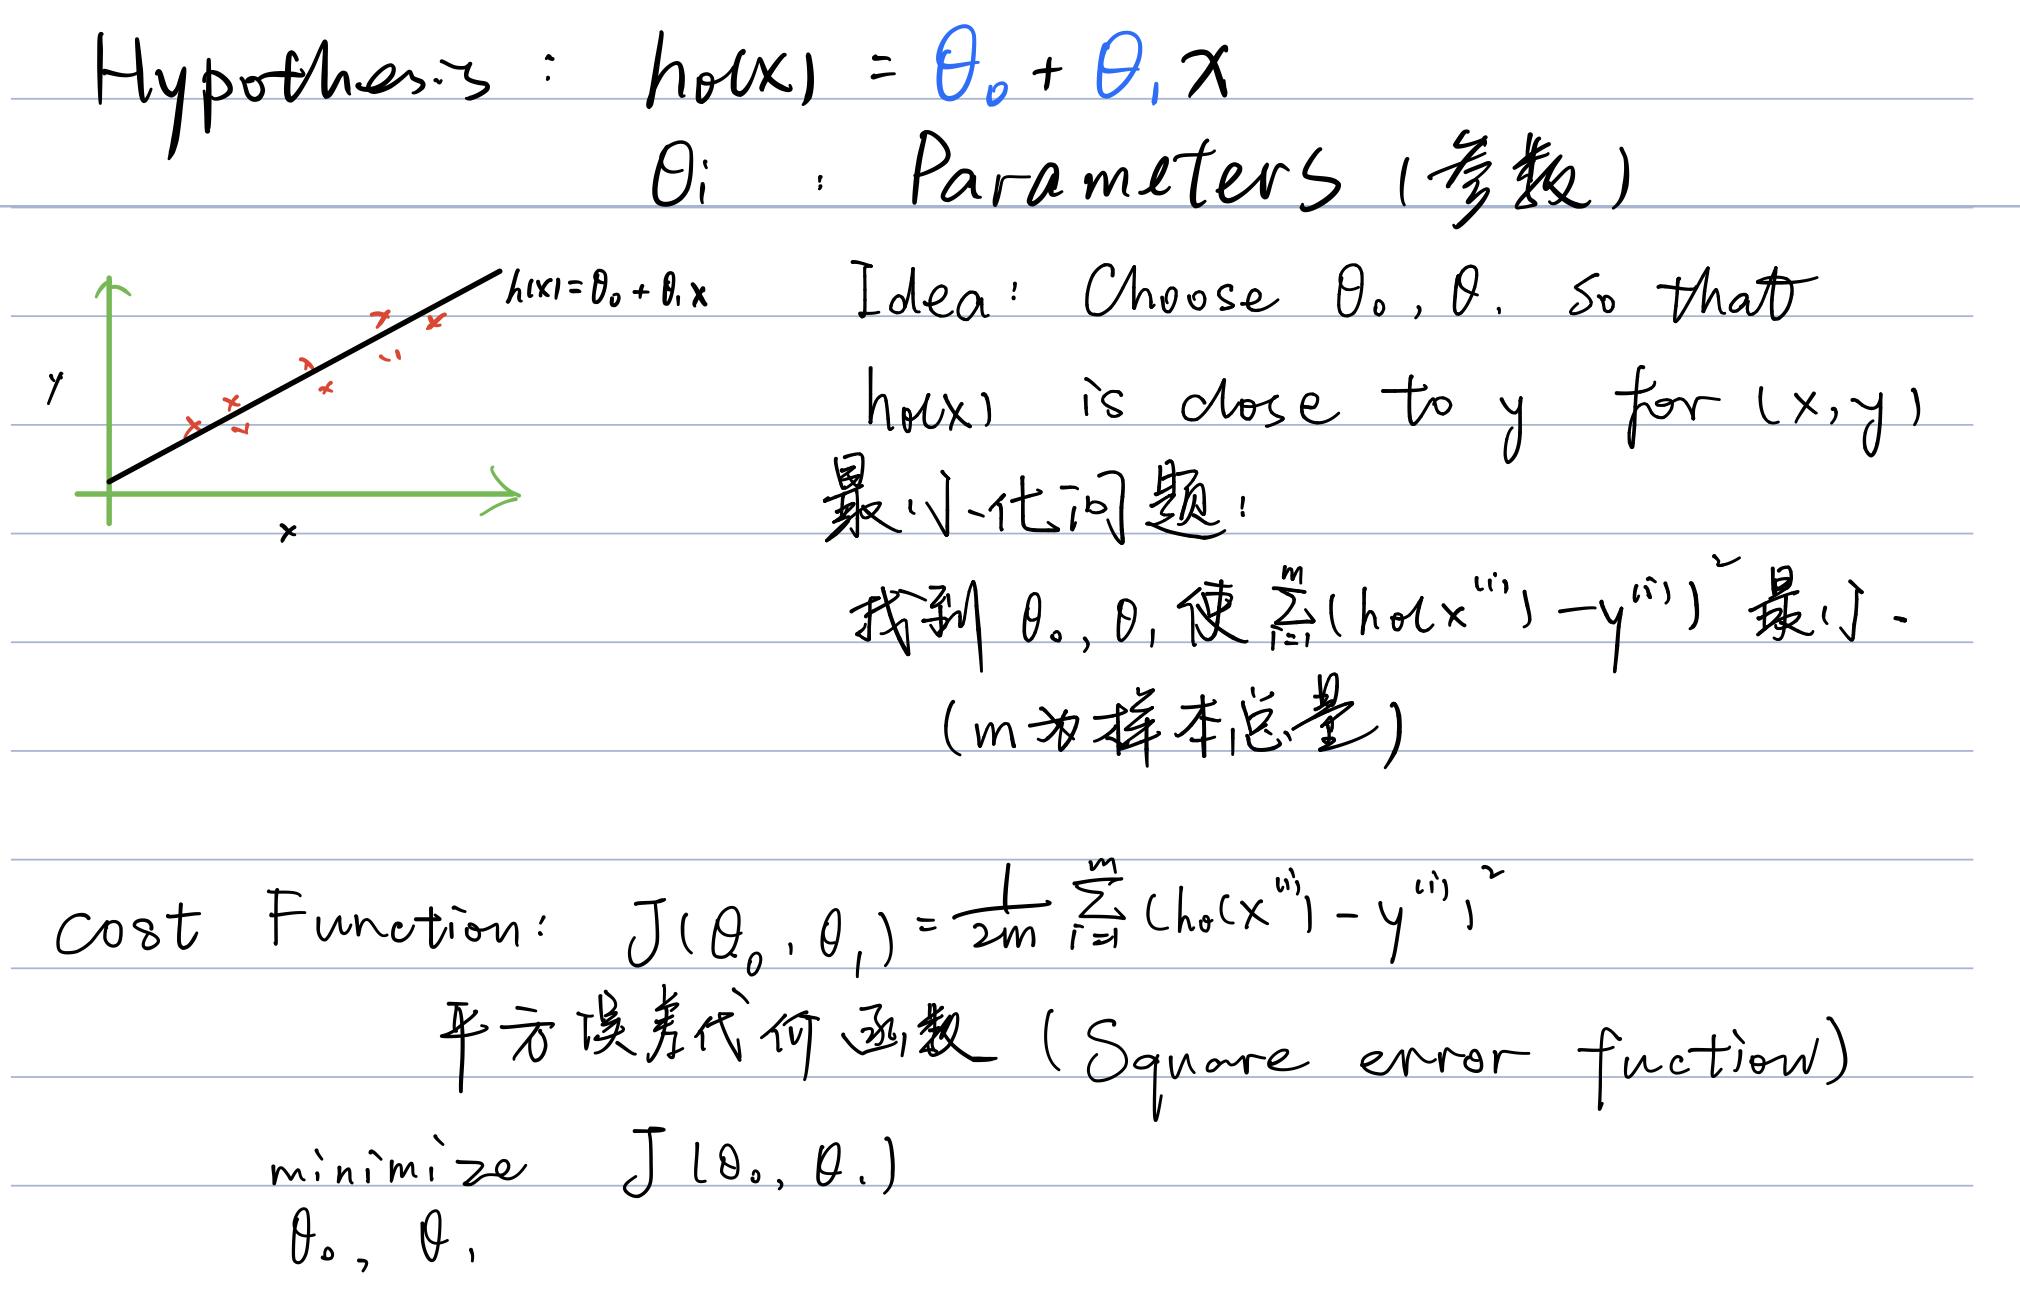 Hypothesis : hθ(x) = θ₀ + θ₁x
θi : Parameters (参数)
h(x)=θ₀ + θ₁x
y
x
Idea: Choose θ₀, θ₁ so that
hθ(x) is close to y for (x,y)
最小化问题:
找到 θ₀, θ₁ 使 \sum_{i=1}^{m} (hθ(x⁽ⁱ⁾) - y⁽ⁱ⁾)² 最小.
(m为样本总量)
cost Function: J(θ₀, θ₁) = \frac{1}{2m} \sum_{i=1}^{m} (hθ(x⁽ⁱ⁾) - y⁽ⁱ⁾)²
平方误差代价函数 (Square error fuction)
minimize J(θ₀, θ₁)
θ₀, θ₁